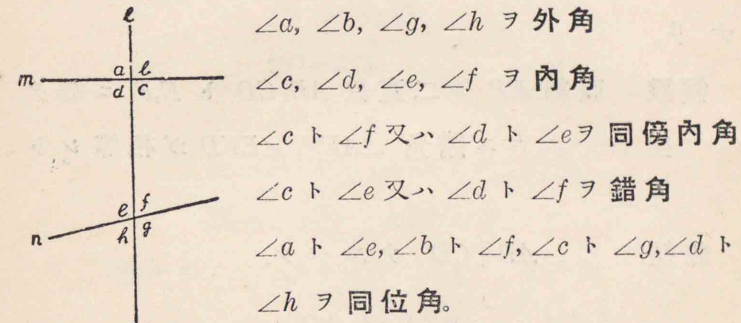 l
a b
m
d c
e f
n
h g
∠a, ∠b, ∠g, ∠h ヲ 外角
∠c, ∠d, ∠e, ∠f ヲ 內角
∠c ト ∠f 又ハ ∠d ト ∠eヲ 同傍內角
∠c ト ∠e 又ハ ∠d ト ∠f ヲ 錯角
∠a ト ∠e, ∠b ト ∠f, ∠c ト ∠g, ∠d ト
∠h ヲ 同位角。